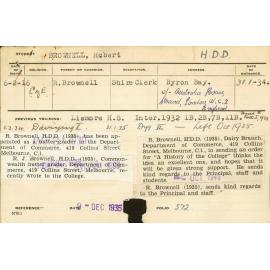 STUDENT: BROWNELL, Robert H D D
DATE OF BIRTH. RELIGION. PARENT OR GUARDIAN. OCCUPATION. ADDRESS. DATE OF ENTRANCE.
6-2-16 CofE R. Brownell Shire Clerk Byron Bay. 31-1-34.
c/- Australia House
Strand, London W.C.2
England
PREVIOUS TRAINING: Lismore H.S. Inter. 1932 1B,2B,7B,11B.
Left Oct 1935
R. Brownell, H.D.D. (1935) has been appointed as a butter grader in the Department of Commerce, 419 Collins Street, Melbourne, C.1.
R. J. Brownell, H.D.D. (1935), Commonwealth butter grader, Department of Commerce, 419 Collins Street, Melbourne, recently wrote to the College.
R. Brownell, H.D.D. (1935), Dairy Branch, Department of Commerce, 419 Collins Street, Melbourne, C.1, in sending an order for "A History of the College" thinks the idea an excellent one, and hopes that all will give strong support. He sends kind regards to the Principal, staff and students.
R. Brownell (1935), sends kind regards to the Principal and staff.
DEC 1935
FOLIO 572